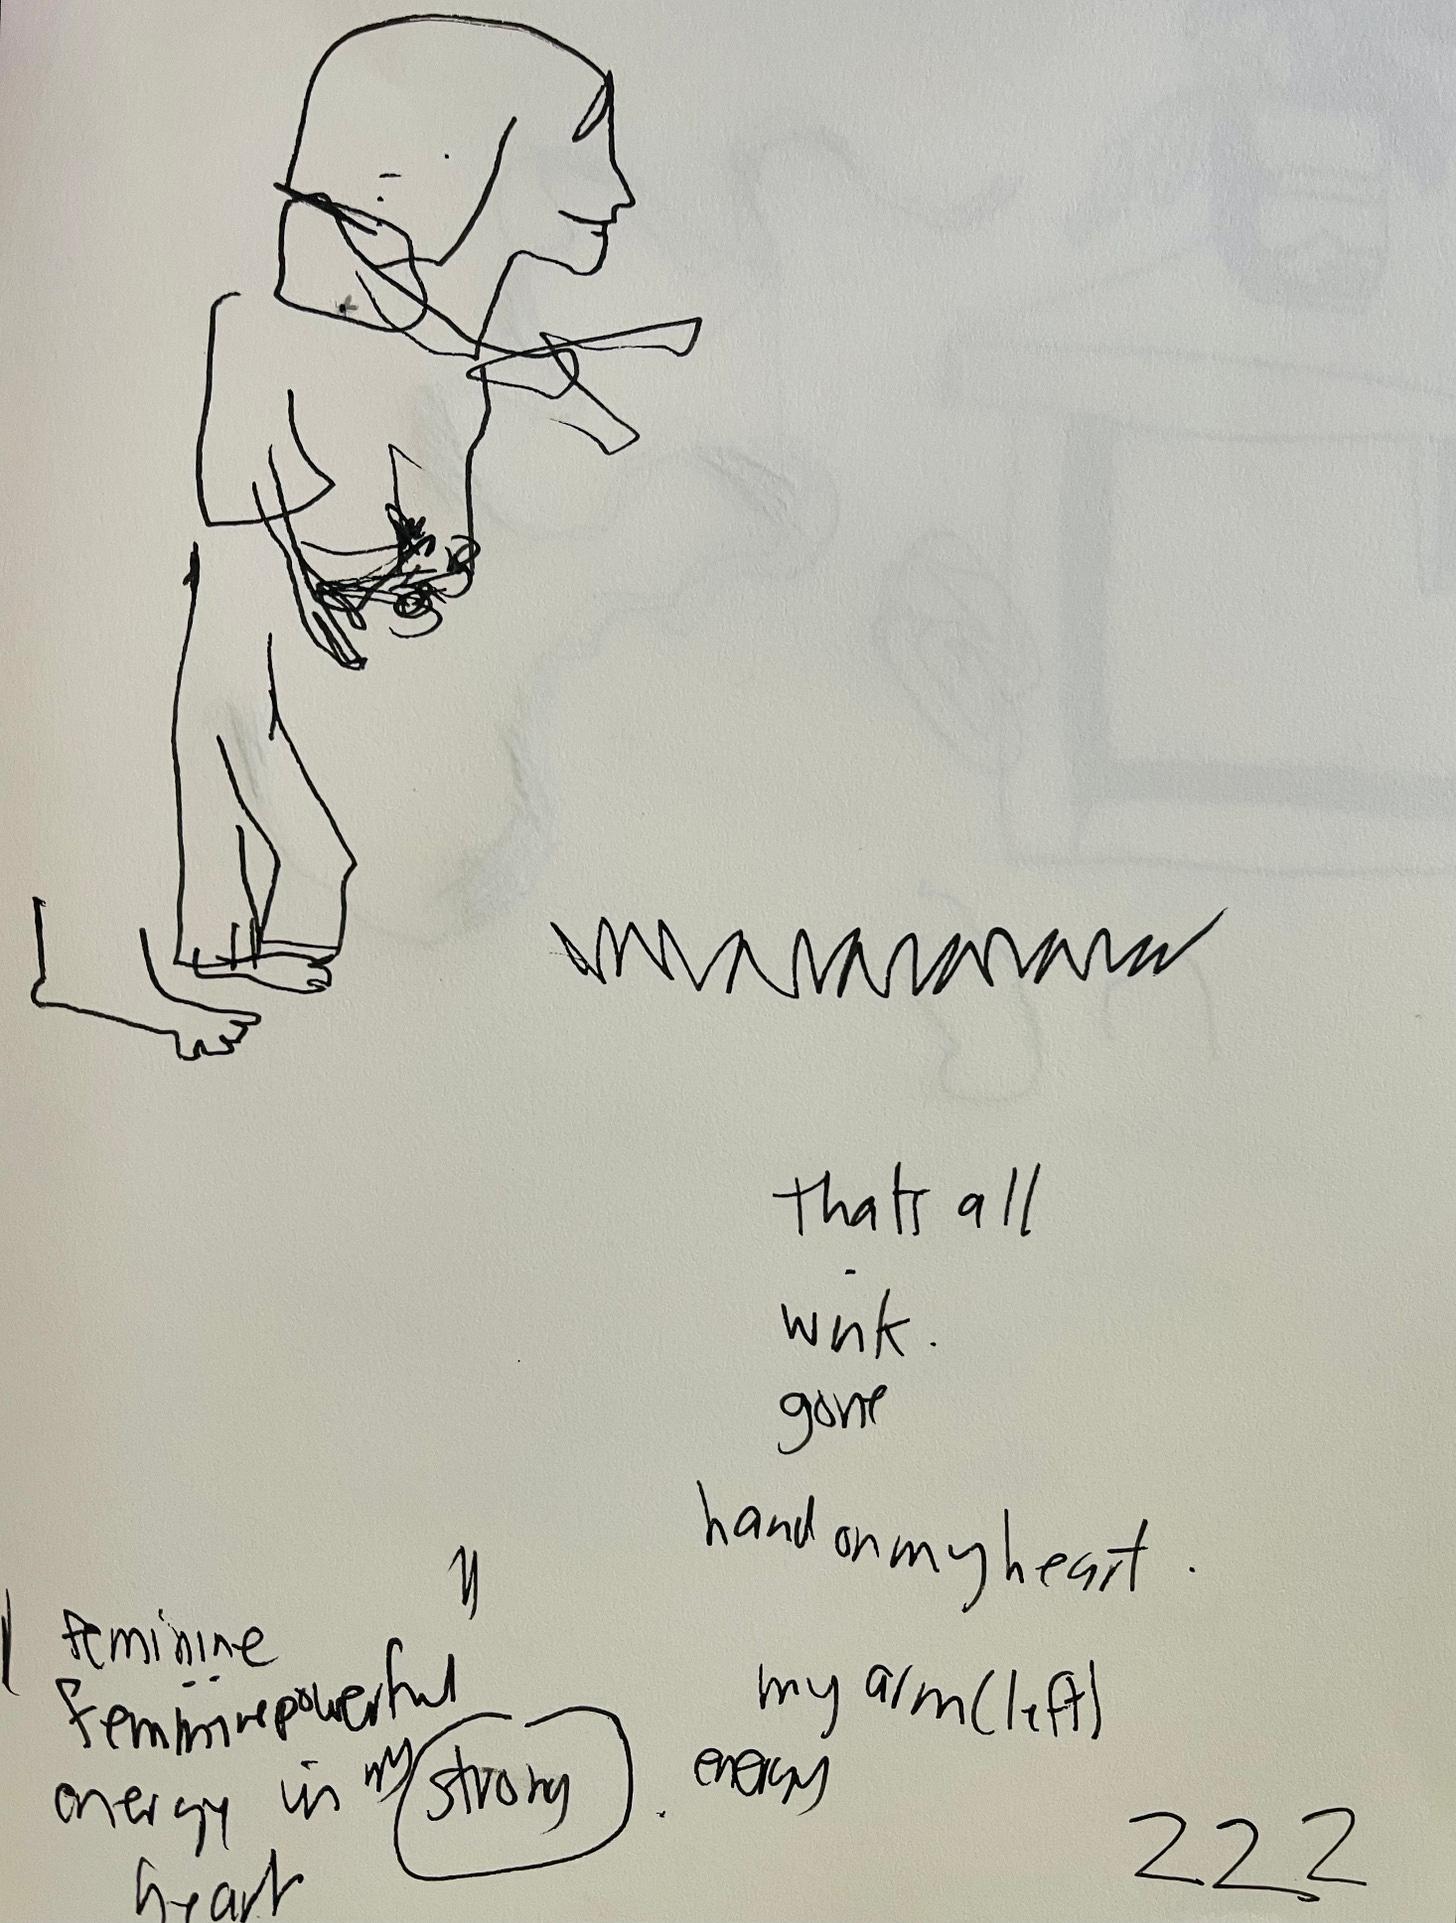 thats all
wink.
gone
hand on my heart.
my arm (left)
energy
feminine
feminine powerful
energy in my strong
heart
222